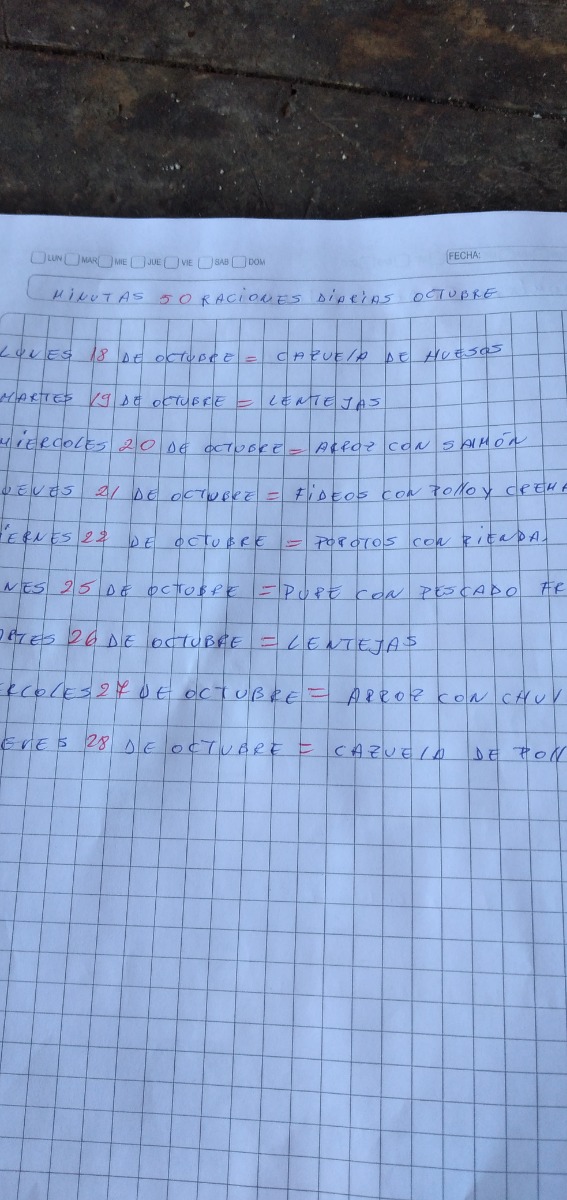 LUN MAR MIE JUE VIE SAB DOM FECHA:
MINUTAS 50 RACIONES DIARIAS OCTUBRE
LUNES 18 DE OCTUBRE = CAZUELA DE HUESOS
MARTES 19 DE OCTUBRE = LENTEJAS
MIERCOLES 20 DE OCTUBRE = ARROZ CON SALMÓN
UEVES 21 DE OCTUBRE = FIDEOS CON POLLO Y CREMA
IERNES 22 DE OCTUBRE = POROTOS CON RIENDA.
NES 25 DE OCTOBRE = PURE CON PESCADO FR
RTES 26 DE OCTUBRE = LENTEJAS
RCOLES 27 DE OCTUBRE = ARROZ CON CHU
EVES 28 DE OCTUBRE = CAZUELA DE POLL